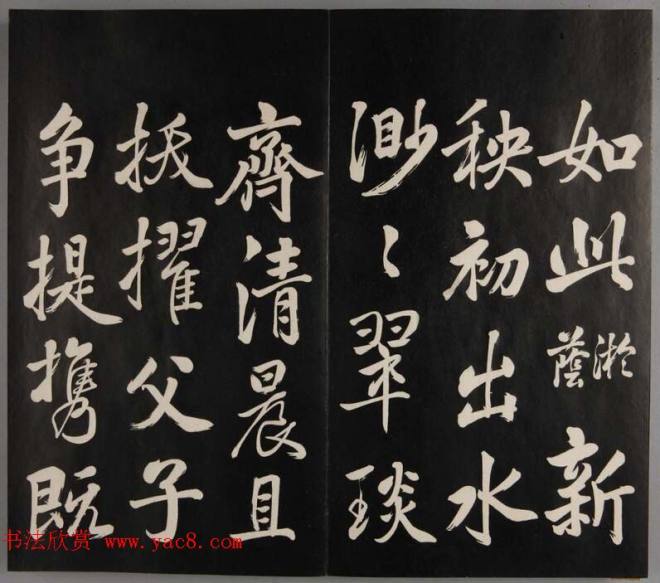 如此淤蔭新
秧初出水
渺〻翠琰
齊清晨且
拔擢父子
争提携既
书法欣赏 www.yac8.com